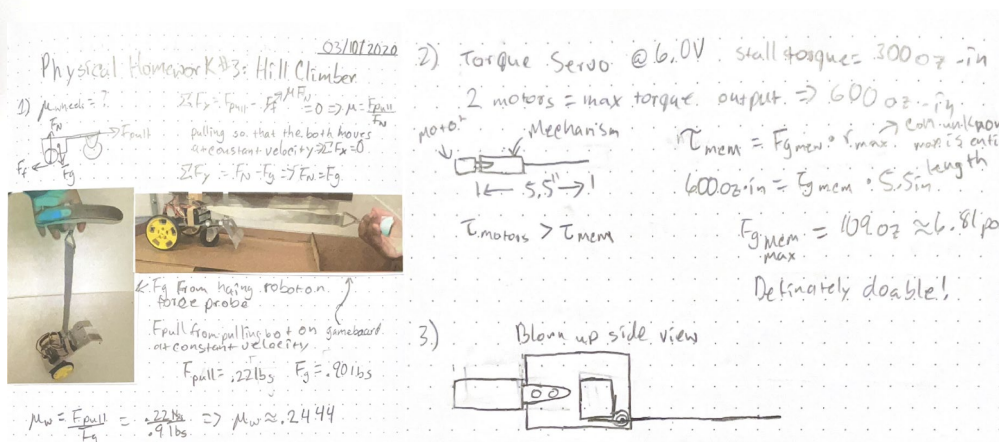 03/10/2020
Physical Homework #3: Hill Climber
1) μwheels = ?
ΣFx = Fpull - Ff = 0 => μ = Fpull/FN
μFN
FN
Fpull
Ff
Fg
pulling so that the both moves
at constant velocity ΣFx=0
ΣFy = FN - Fg => FN = Fg
Fg from haing robot on
force probe
Fpull from pulling bot on gameboard
at constant velocity
Fpull = .22lbs Fg = .90lbs
μw = Fpull/Fg = .22lbs/.9lbs => μw ≈ .2444
2) Torque Servo @ 6.0V stall torque = 300 oz-in
2 motors = max torque output => 600 oz-in
Motor
Mechanism
5.5"
τmotors > τmem
τmem = Fgmem · rmax
max is enti
length
600 oz·in = Fgmem · 5.5in
Fgmem max = 109 oz ≈ 6.81 po
Definately doable!
3.) Blown up side view